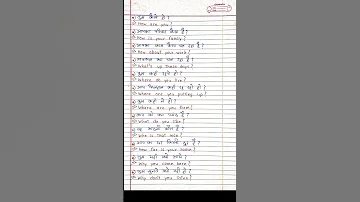 तुम कैसे हो ?
How are you ?
आपका परिवार कैसा है ?
How is your family ?
आपका काम कैसा चल रहा है ?
How about your work ?
आजकल क्या चल रहा है ?
What's up these days ?
तुम कहाँ रहते हो ?
Where do you live ?
आप फिलहाल कहाँ रह रहे हो ?
Where are you putting up ?
तुम कहाँ से हो ?
Where are you from ?
आप को क्या पसंद है ?
What do you like ?
वह आदमी कौन है ?
Who is that man ?
आप का घर कितनी दूर है ?
How far is your home ?
तुम यहाँ क्यों आये ?
Why you come here ?
तुम सुनते क्यों नहीं हो ?
Why don't you listen ?